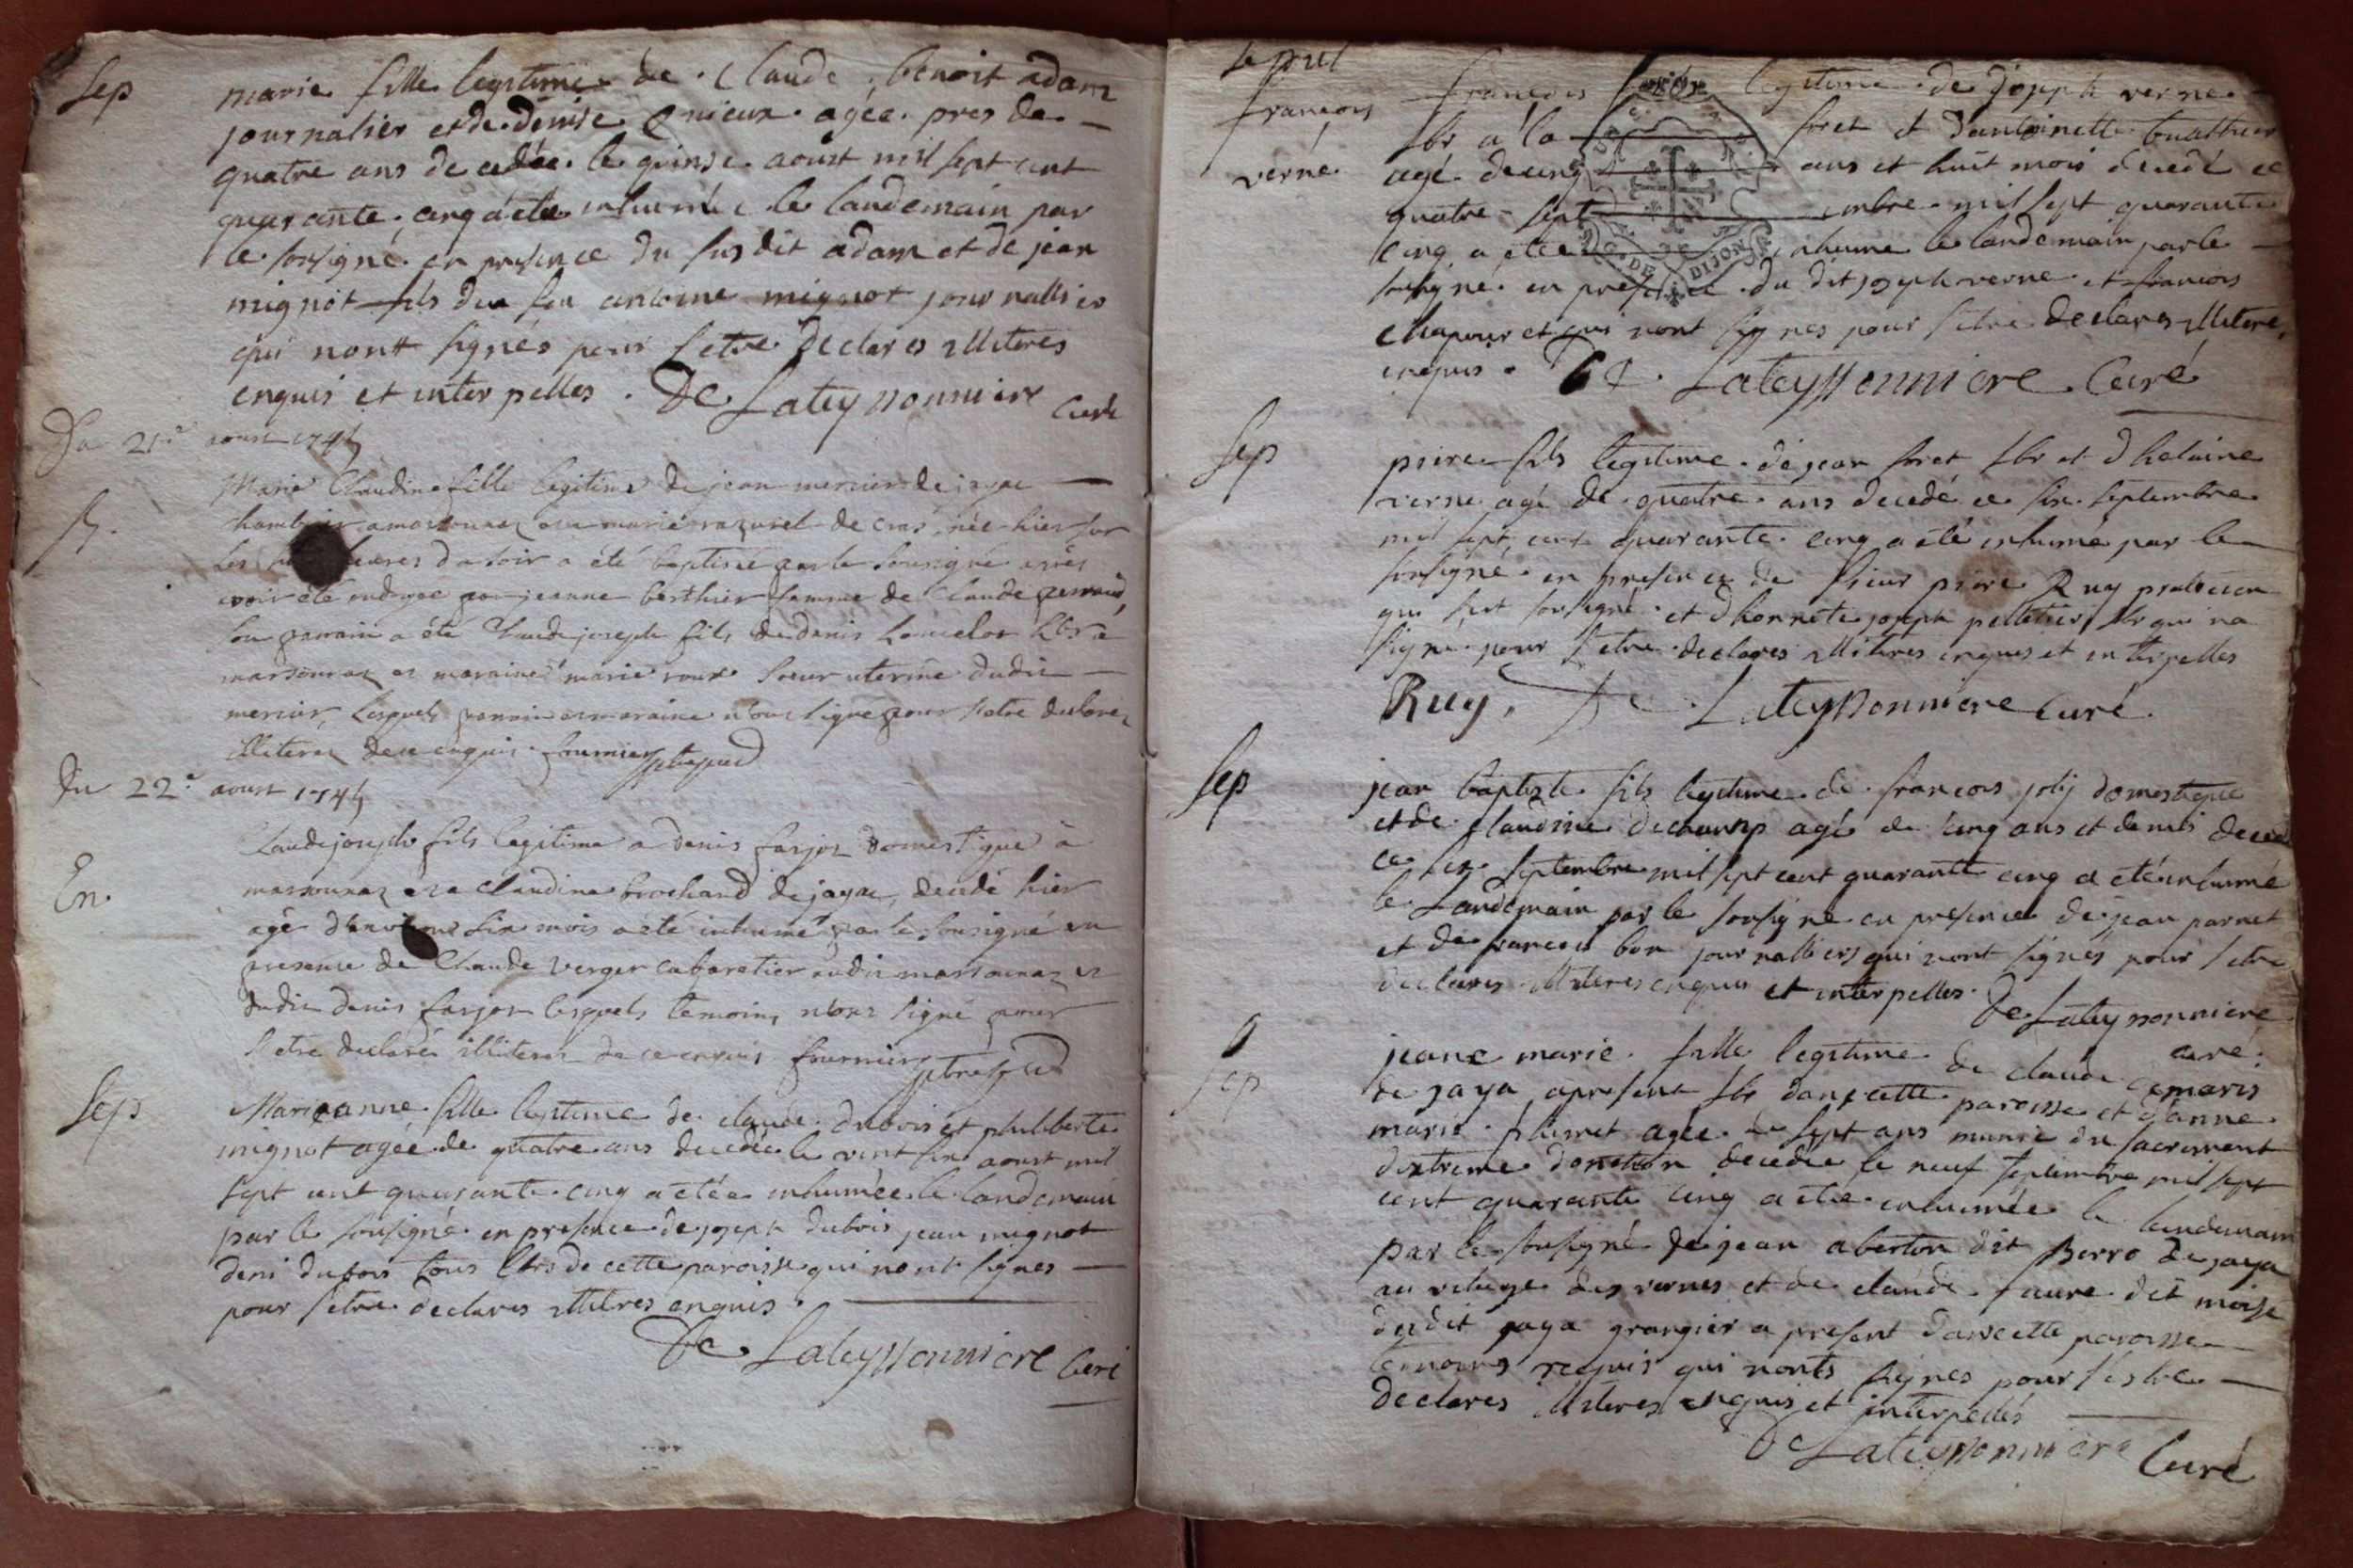 Sep
marie fille legitime de Claude benoit adam
journalier et de denise mieux agée pres de
quatre ans decedée le quinse aoust mil sept cent
quarante cinq a étée inhumée le landemain par
le sousigné en presence du susdit adam et de jean
mignot fils du feu antoine mignot journallier
qui nont signés pour setre declares illiteres
enquis et interpelles. De Lateyssonniere Curé
Du 21e aoust 1745
Marie Claudine fille legitime de jean mercier de jayac
a marsonnaz et a marie razurel de cras, née hier sur
les heures du soir a été baptisée par le sousigné après
avoir été ondoyée par jeanne berthier femme de Claude
Son parain a été Claude joseph fils de denis Lancelot Lbr a
marsonnaz et maraine marie roux Soeur uterine dudit
mercier, Lesquels parain et maraine nont signé pour setre declarez
illiterez de ce enquis. fournier
B.
Du 22e aoust 1745
Claude joseph fils legitime a denis farjot domestique à
En.
marsonnaz et a Claudine brochand de jayac, decedé hier
agé d'environ six mois a été inhumé par le sousigné en
presence de Claude verger cabaretier audit marsonnaz et
dudit denis farjot lesquels temoins nont signé pour
setre declarés illiterez de ce enquis fournier
Sep
Marieanne fille legitime de claude dubois et philiberte
mignot agée de quatre ans decedée le vint six aoust mil
sept cent quarante cinq a étée inhumée le landemain
par le sousigné en presence de joseph dubois jean mignot
deni dubois tous lbrs de cette paroisse qui nont signes
pour setre declares illitres enquis.
De Lateyssonniere Curé
Sepul
françois
verne
françois legitime de joseph verne
lbr a la foret et dantoinette
agé de cinq ans et huit mois decedé ce
quatre septembre mil sept quarante
cinq a étée inhume le landemain par le
sousigné en presence du dit joseph verne et françois
chapour et qui nont signes pour setre declares illitere,
enquis. De Lateyssonniere Curé
Sep
piere fils legitime de jean foret lbr et dhelaine
verne agé de quatre ans decedé ce six septembre
mil sept cent quarante cinq a été inhumé par le
sousigné en presence de sieur piere Ruy praticien
qui sest sousigné et dhonnete joseph pelletier lbr qui na
signe pour setre declares illiteres enques et interpelles
Ruy, De Lateyssonniere Curé.
Sep
jean baptiste fils legitime de francois joly domestique
et de claudine dechamp agé de cinq ans et demis decedé
ce six septembre mil sept cent quarante cinq a été inhumé
le Landemain par le sousigné en presence de jean parnet
et de francois bon journalliers qui nont signés pour setre
declares illiteres enquis et interpelles. De Lateyssonniere
curé.
Sep
jeane marie fille legitime de claude
de jaya apresent lbr dans cette paroisse et d'anne
marie plumet agée de sept ans munie du sacrement
dextreme donction decedée le neuf septembre mil sept
cent quarante cinq a étée inhumée le landemain
par le sousigné de jean aberton dit Berro de jaya
au vilage des vernes et de claude faure dit moise
dudit jaya grangier a present dans cette paroisse
temoins requis qui nonts signes pour sestre
declares illiteres enquis et interpellés
De Lateyssonniere Curé
G. DE DIJON